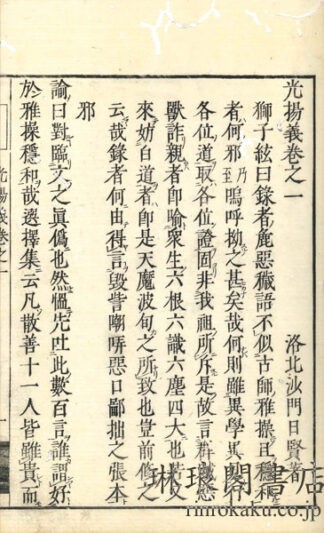 光揚義卷之一
洛北沙門日賢著
獅子絃曰錄者麁惡穢語不似古師雅操且穩和
者何邪乃至嗚呼拗之甚矣哉何則雖異學異
各位道取各位證固非我祖所斥是故言群賊惡
獸詐親者卽喩衆生六根六識六塵四大也若又
來妨白道者卽是天魔波旬之所致也豈前修之
云哉錄者何由得言毀呰嘲哢惡口鄙拙之張本
邪
諭曰對臨文之眞僞也然慍兇吐此數百言誰謂好
於雅操穩和哉選擇集云凡散善十一人皆雖貴而
光揚義卷之一
琳琅閣書店
rinrokaku.co.jp